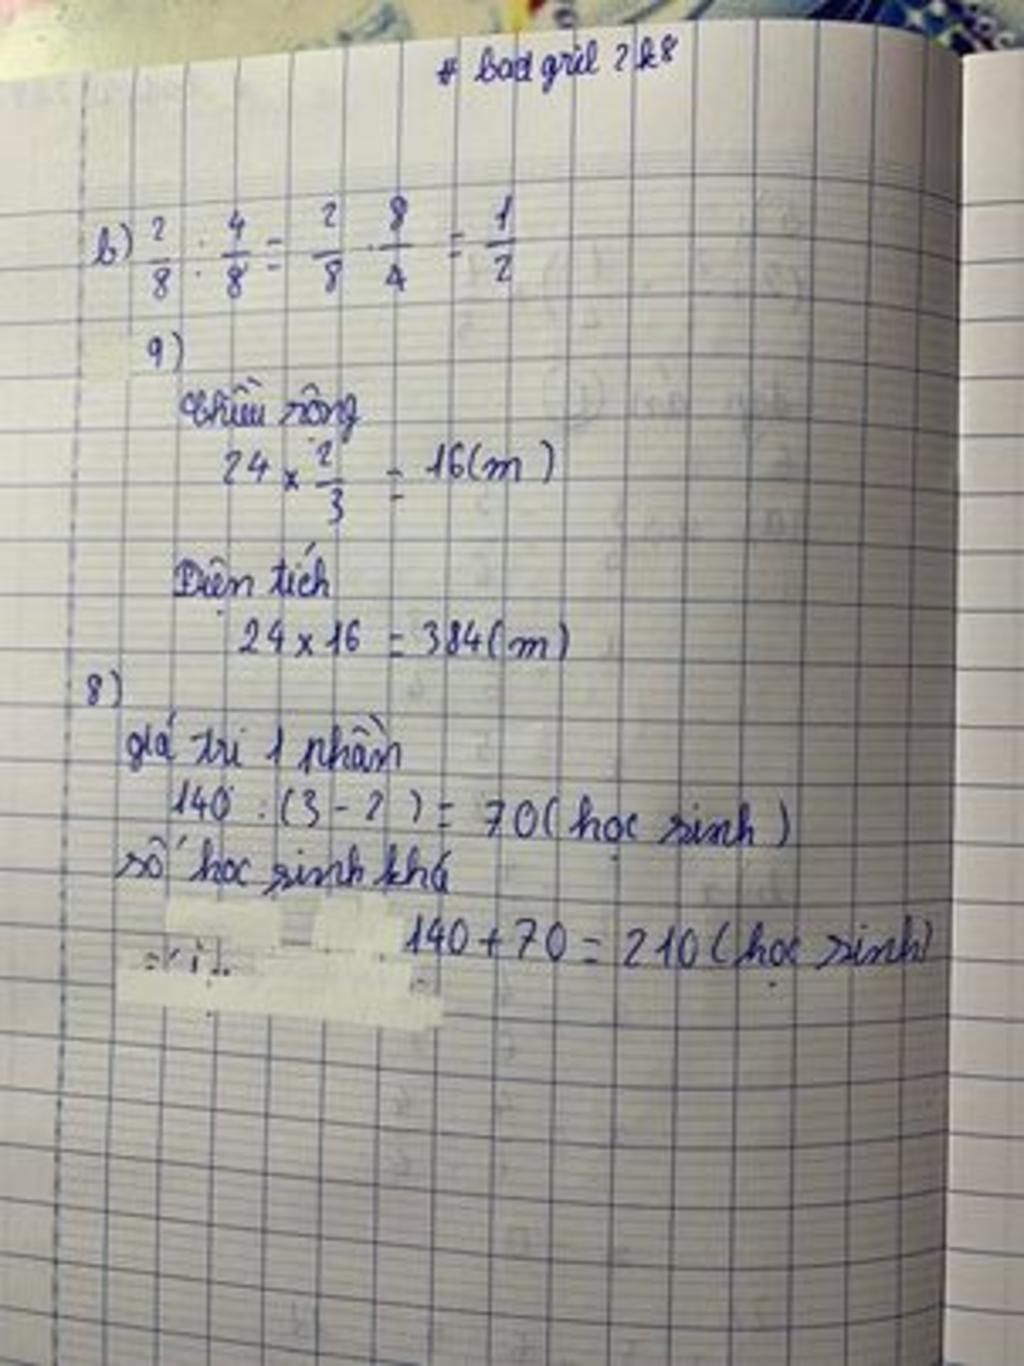 # bad gril 2k8
b) 2/8 : 4/8 = 2/8 . 8/4 = 1/2
9)
Chiều rộng
24 x 2/3 = 16(m)
Diện tích
24 x 16 = 384(m)
8)
giá trị 1 phần
140 : (3 - 2) = 70(học sinh)
số học sinh khá
140 + 70 = 210(học sinh)